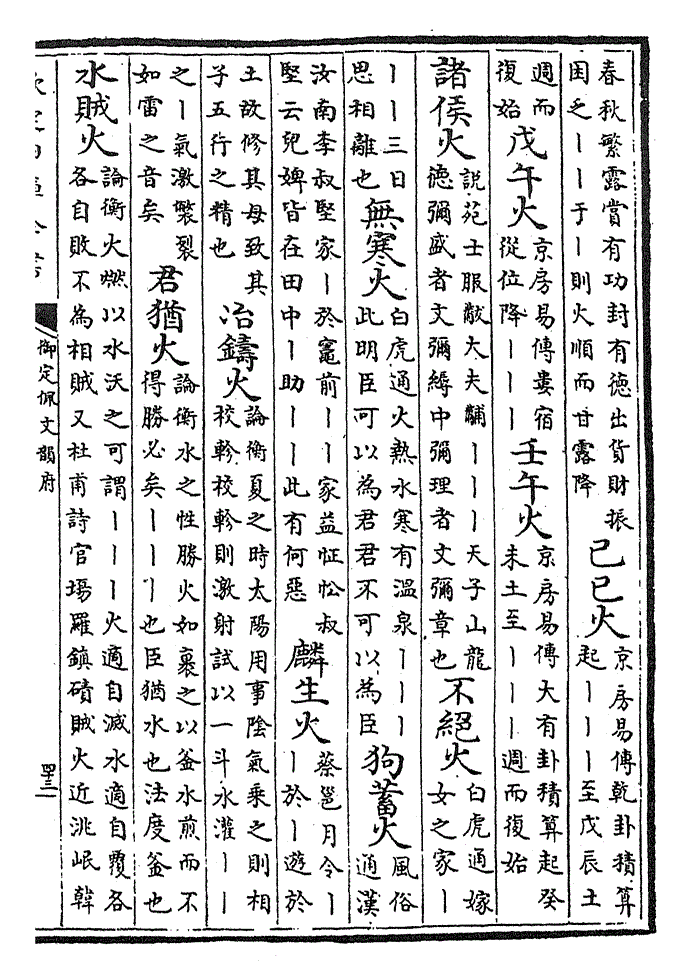 春秋繁露賞有功封有徳出貨財振
困乏丨丨于丨則火順而甘露降
己巳火
京房易傳乾卦積算
起丨丨丨至戊辰土
週而
復始
戊午火
京房易傳婁宿
從位降丨丨丨
壬午火
京房易傳大有卦積算起癸
未土至丨丨丨週而復始
諸侯火
說苑士服黻大夫黼丨丨丨天子山龍
徳彌盛者文彌縟中彌理者文彌章也
不絕火
白虎通嫁
女之家丨
丨丨三日
思相離也
無寒火
白虎通火熱水寒有溫泉丨丨丨
此明臣可以為君君不可以為臣
狗蓄火
風俗
通漢
汝南李叔堅家丨於竈前丨丨家益怔忪叔
堅云兒婢皆在田中丨助丨丨此有何惡
麟生火
蔡邕月令丨
丨於丨遊於
土故修其母致其
子五行之精也
冶鑄火
論衡夏之時太陽用事陰氣乘之則相
校軫校軫則激射試以一斗水灌丨丨
之丨氣激裂
如雷之音矣
君猶火
論衡水之性勝火如裹之以釜水煎而不
得勝必矣丨丨丨也臣猶水也法度釜也
水賊火
論衡火燃以水沃之可謂丨丨丨火適自滅水適自覆各
各自敗不為相賊又杜甫詩官塲羅鎮磧賊火近洮岷韓
御定佩文韻府
四十三